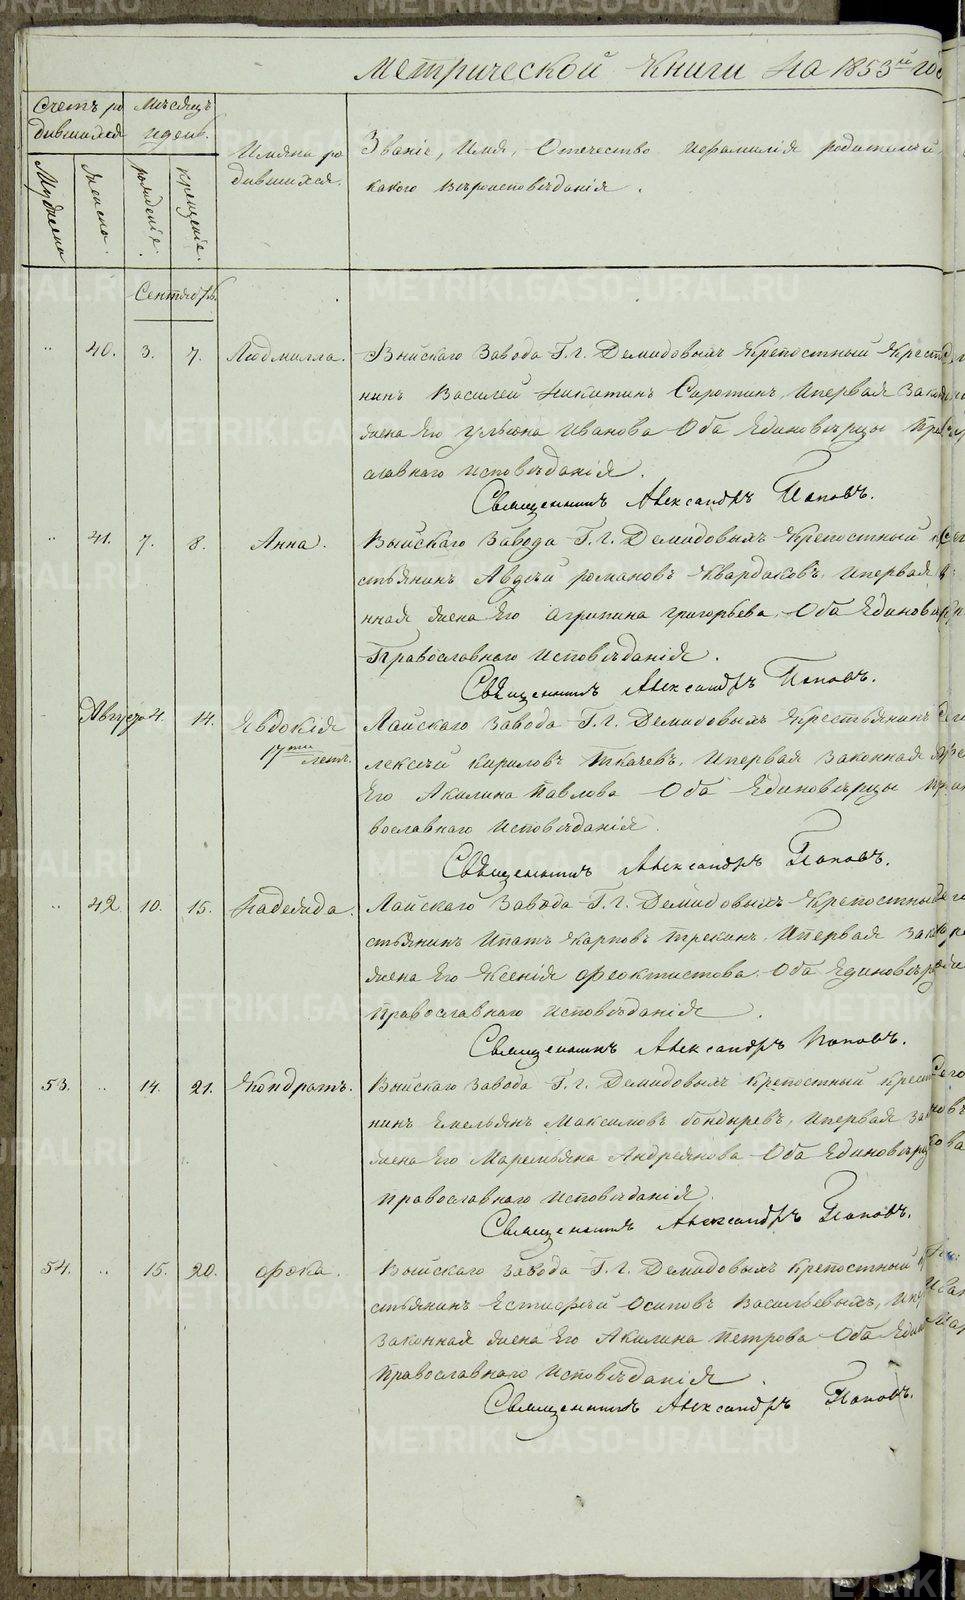 Метрической Книги На 1853й год
Счетъ ро
дившихся
Мѣсяцъ
и день.
Имяна ро
дившихся.
Званіе, Имя, Отечество и фамилія родителей,
какого вѣроисповѣданія.
Мужеска
женска.
рожденіе.
крещеніе.
Сентябрь.
" 40. 3. 7. Людмилла. Выйскаго Завода Г.г. Демидовыхъ Крепостный Кресть
нинъ Василей Никитинъ Сиротинъ, Ипервая Закон
жена Его Ульяна Иванова Оба Единовѣрцы Пра
славнаго исповѣданія.
Священникъ Александръ Поповъ.
" 41. 7. 8. Анна. Выйскаго Завода Г.г. Демидовыхъ Крепостный кр
стьянинъ Авдѣй романовъ Квардаковъ, Ипервая
нная жена Его Агрипина григорьева, Оба Единовѣр
Православнаго исповѣданія.
Священникъ Александръ Поповъ.
Августа 4. 14. Евдокія Лайскаго Завода Г.г. Демидовыхъ Крестьянинъ
17ти летъ. лексѣй кириловъ Ткачевъ, Ипервая законная
Его Акилина Павлова Оба Единовѣрцы Пра
вославнаго Исповѣданія
Священникъ Александръ Поповъ.
" 42. 10. 15. Надежда. Лайскаго Завода Г.г. Демидовыхъ Крепостный
стьянинъ Ипатъ Карповъ Трекинъ, Ипервая Зак
жена Его Ксенія Феоктистова, Оба Единовѣр
Православнаго исповѣданія.
Священникъ Александръ Поповъ.
53. " 14. 21. Кондратъ. Выйскаго Завода Г.г. Демидовыхъ Крепостный крест
нинъ Емельянъ Максимовъ бондыревъ, Ипервая За
жена Его Маремьяна Андреянова Оба Единовѣр
православнаго исповѣданія.
Священникъ Александръ Поповъ.
54. " 15. 20. Фока. Выйскаго Завода Г.г. Демидовыхъ Крепостный к
стьянинъ Естифѣй Осиповъ Васильевыхъ, Ипер
Законная жена Его Акилина Петрова Оба Един
Православнаго исповѣданія.
Священникъ Александръ Поповъ.
METRIKI.GASO-URAL.RU